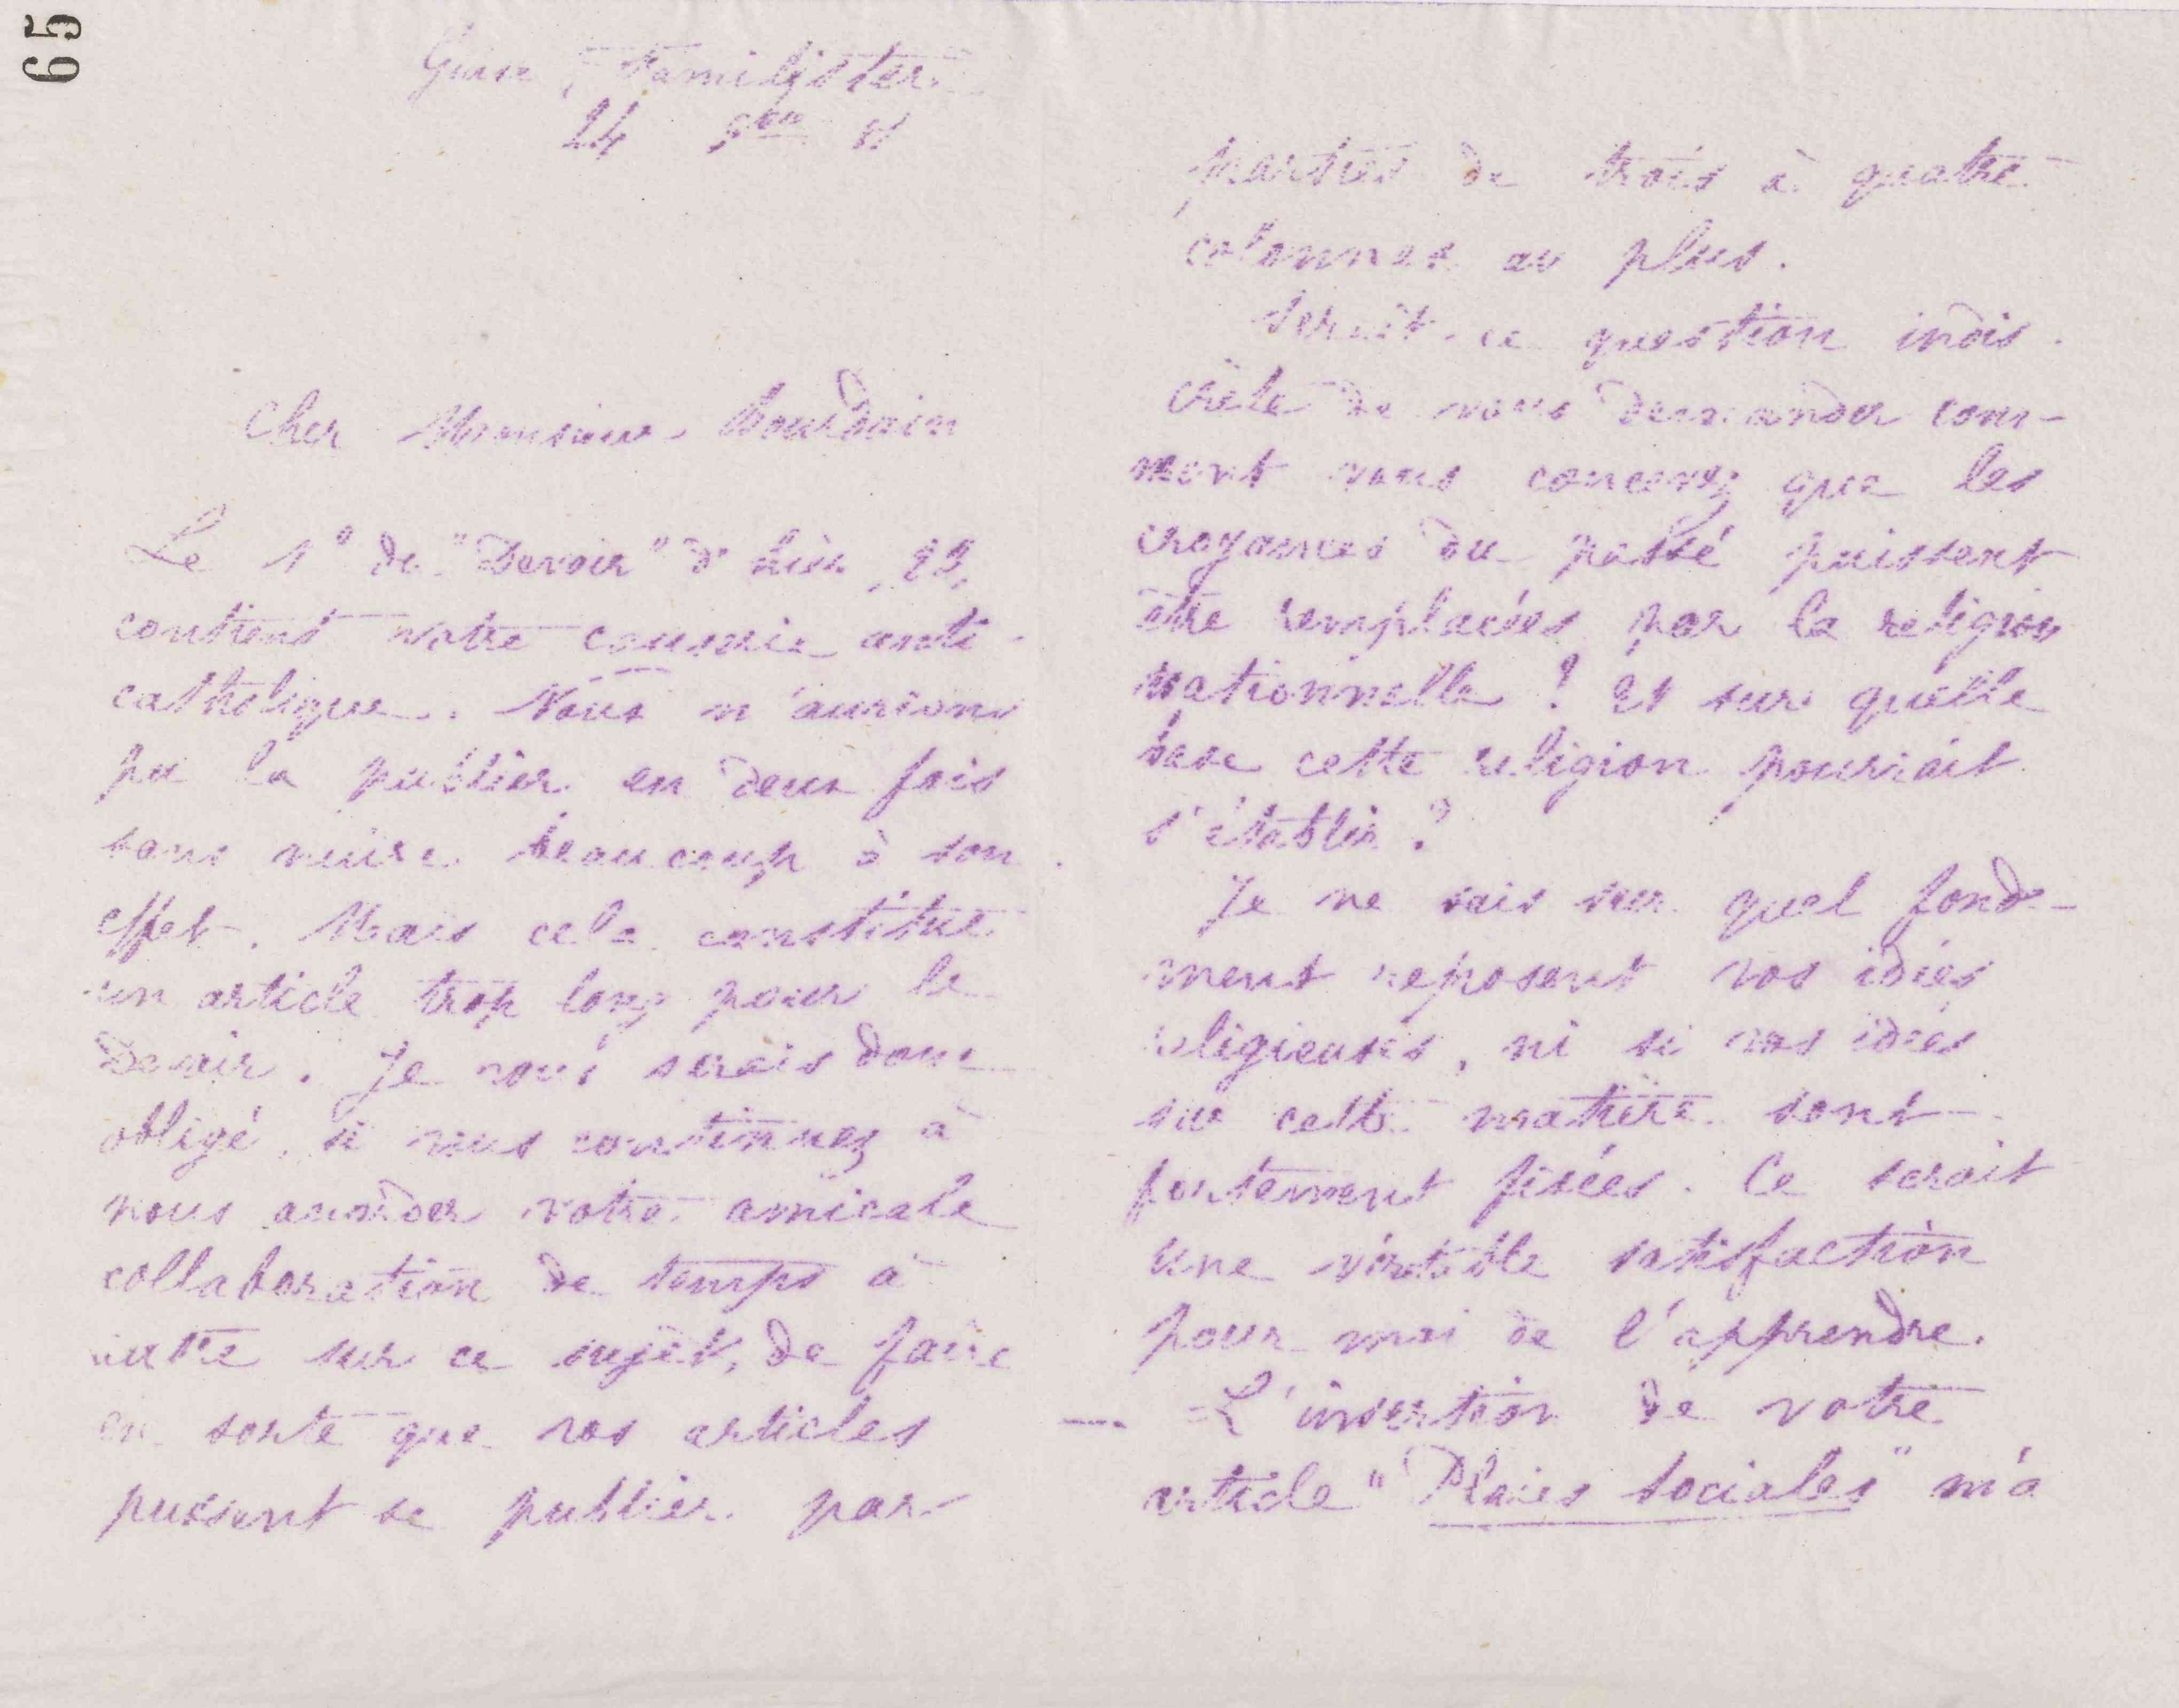 65
Guise, Familistère
24 9bre 81
Cher Monsieur Jourdain
Le n° du "Devoir" d'hier, 23,
contient votre causerie anti-
catholique. Nous n'aurions
pu la publier en deux fois
sans nuire beaucoup à son
effet. Mais cela constitue
un article trop long pour le
Devoir. Je vous serais donc
obligé, si vous continuez à
nous accorder votre amicale
collaboration de temps à
autre sur ce sujet, de faire
en sorte que vos articles
puissent se publier par
parties de trois à quatre
colonnes au plus.
Serait-ce question indis-
crète de vous demander com-
ment vous concevez que les
croyances du passé puissent
être remplacées par la religion
rationnelle ? Et sur quelle
base cette religion pourrait
s'établir ?
Je ne sais sur quel fonde-
ment reposent vos idées
religieuses, ni si vos idées
sur cette matière sont
fortement fixées. Ce serait
une véritable satisfaction
pour moi de l'apprendre.
— L'insertion de votre
article "Plaies sociales" m'a